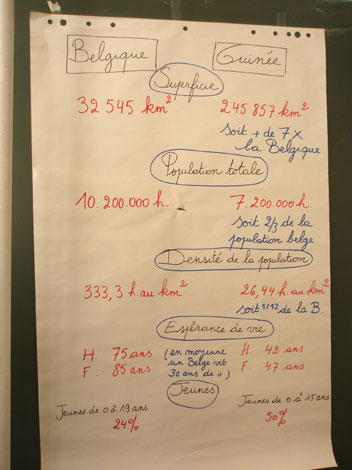 Belgique Guinée
Superficie
32 545 km² 245 857 km²
soit + de 7 x
la Belgique
Population totale
10.200.000 h. 7.200.000 h.
soit 2/3 de la
population belge
Densité de la population
333,3 h. au km² 26,44 h. au km²
soit 1/12 de la B.
Espérance de vie
H. 75 ans (en moyenne H. 42 ans
F. 85 ans un Belge vit F. 47 ans
30 ans de +)
Jeunes
Jeunes de 0 à 19 ans Jeunes de 0 à 15 ans
24% 50%